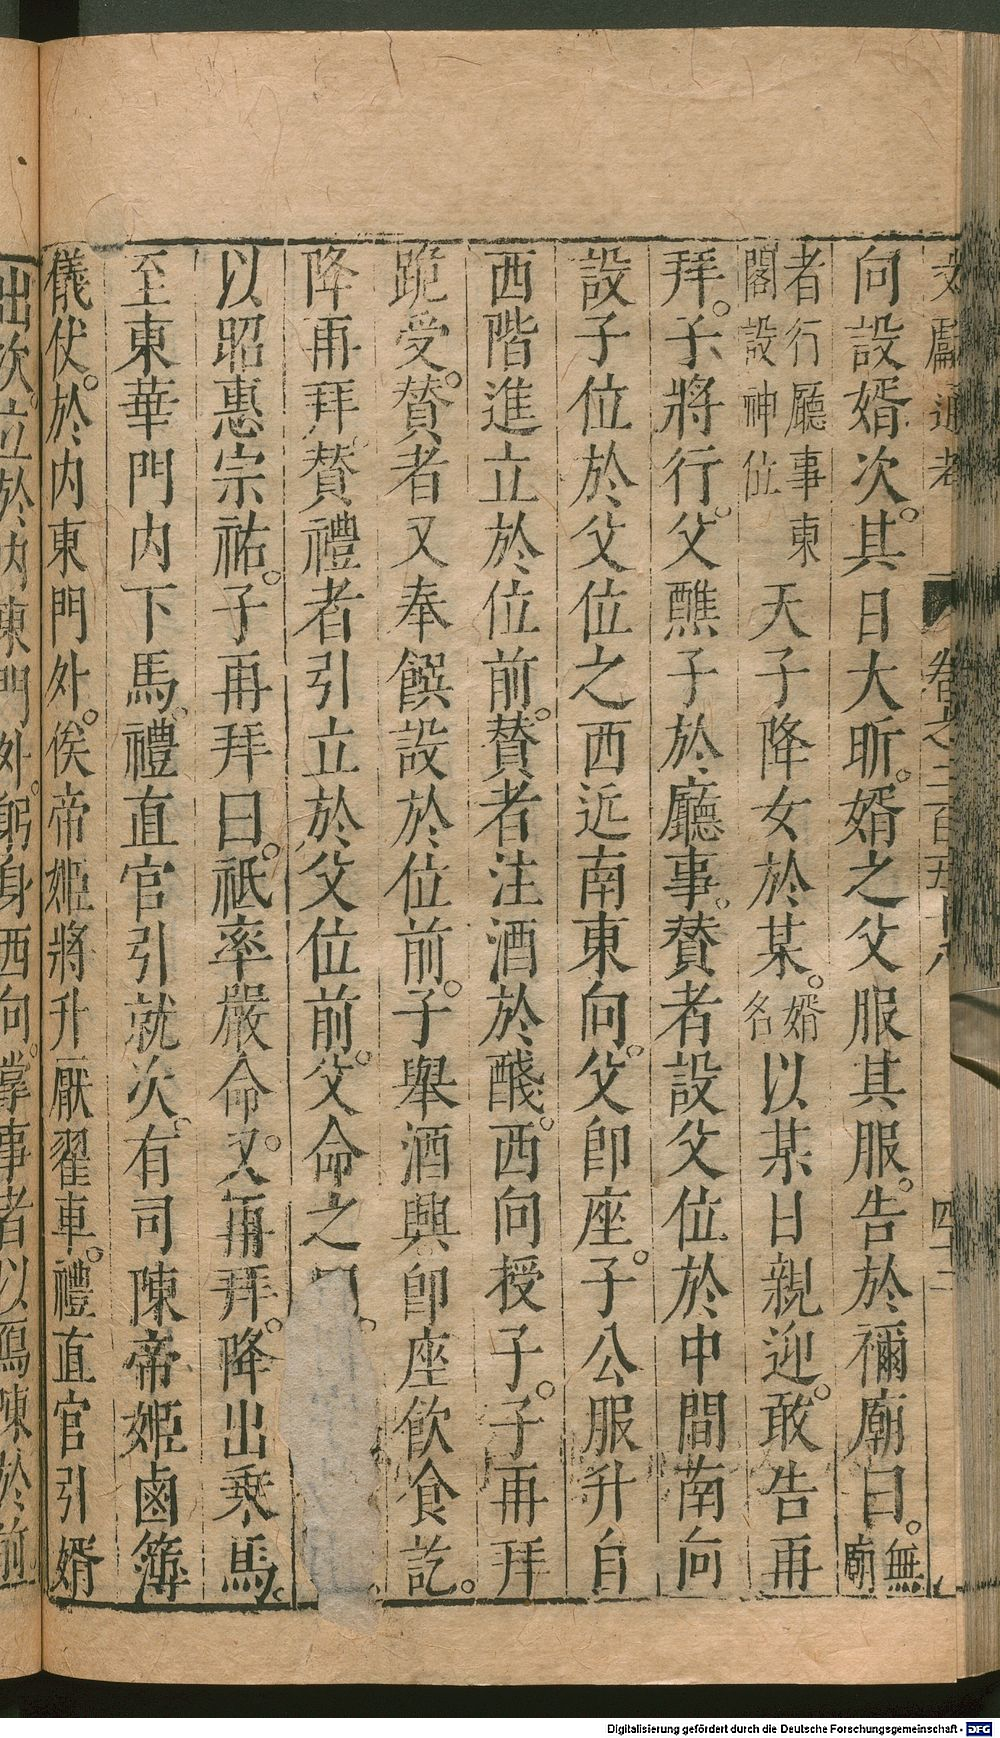 文獻通考 卷之二百五十八 四十二
向設婿次。其日大昕。婿之父服其服。告於禰廟曰。無廟
者行廳事東閣設神位天子降女於某。婿名以某日親迎。敢告再
拜。子將行。父醮子於廳事。贊者設父位於中間南向
設子位於父位之西近南東向。父卽座。子公服升自
西階進立於位前。贊者注酒於醆。西向授子。子再拜
跪受。贊者又奉饌設於位前。子舉酒興卽座飲食訖。
降再拜。贊禮者引立於父位前。父命之
以昭惠宗祐。子再拜曰。祗率嚴命。又再拜。降出乘馬。
至東華門內下馬。禮直官引就次。有司陳帝姬鹵簿
儀仗。於內東門外。俟帝姬將升厭翟車。禮直官引婿
出次。立於內東門外。躬身西向。掌事者以鴈陳於前
Digitalisierung gefördert durch die Deutsche Forschungsgemeinschaft - DFG